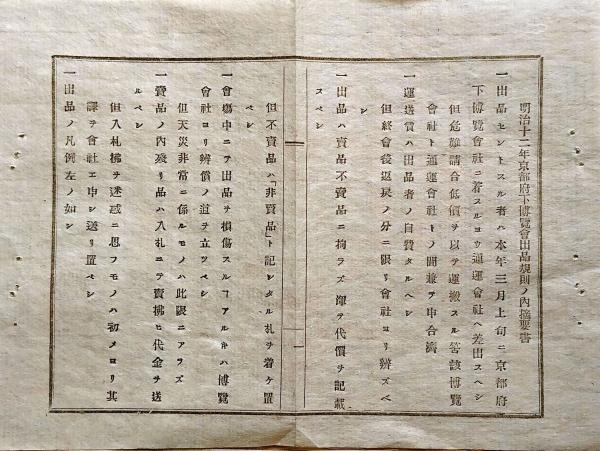 明治十二年京都府下博覽會出品規則ノ內摘要書
一出品セントスル者ハ本年三月上旬ニ京都府
下博覽會社ニ着スルヨウ通運會社ヘ差出スヘシ
但危難請合低價ヲ以テ運搬スル筈該博覽
會社ト通運會社トノ間兼テ申合濟
一運送賃ハ出品者ノ自費タルヘシ
但終會後返戻ノ分ニ限リ會社ヨリ辨ズベ
シ
一出品ハ賣品不賣品ニ拘ラズ渾テ代價ヲ記載
スベシ
但不賣品ハ「非賣品」ト記シタル札ヲ着ケ置
ベシ
一會塲中ニテ出品ヲ損傷スルヿアルキハ博覽
會社ヨリ辨償ノ道ヲ立ツベシ
但天災非常ニ係ルモノハ此限ニアラズ
一賣品ノ內殘リ品ハ入札ニテ賣拂ヒ代金ヲ送
ルベシ
但入札拂ヲ迷惑ニ思フモノハ初メヨリ其
譯ヲ會社エ申シ送リ置ベシ
一出品ノ凡例左ノ如シ